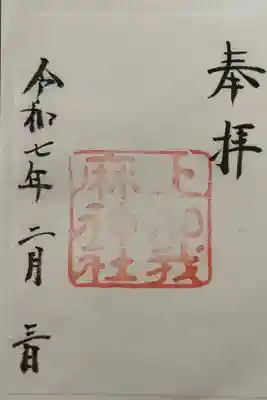 奉拝
上知我
麻神社
令和七年 二月 三日